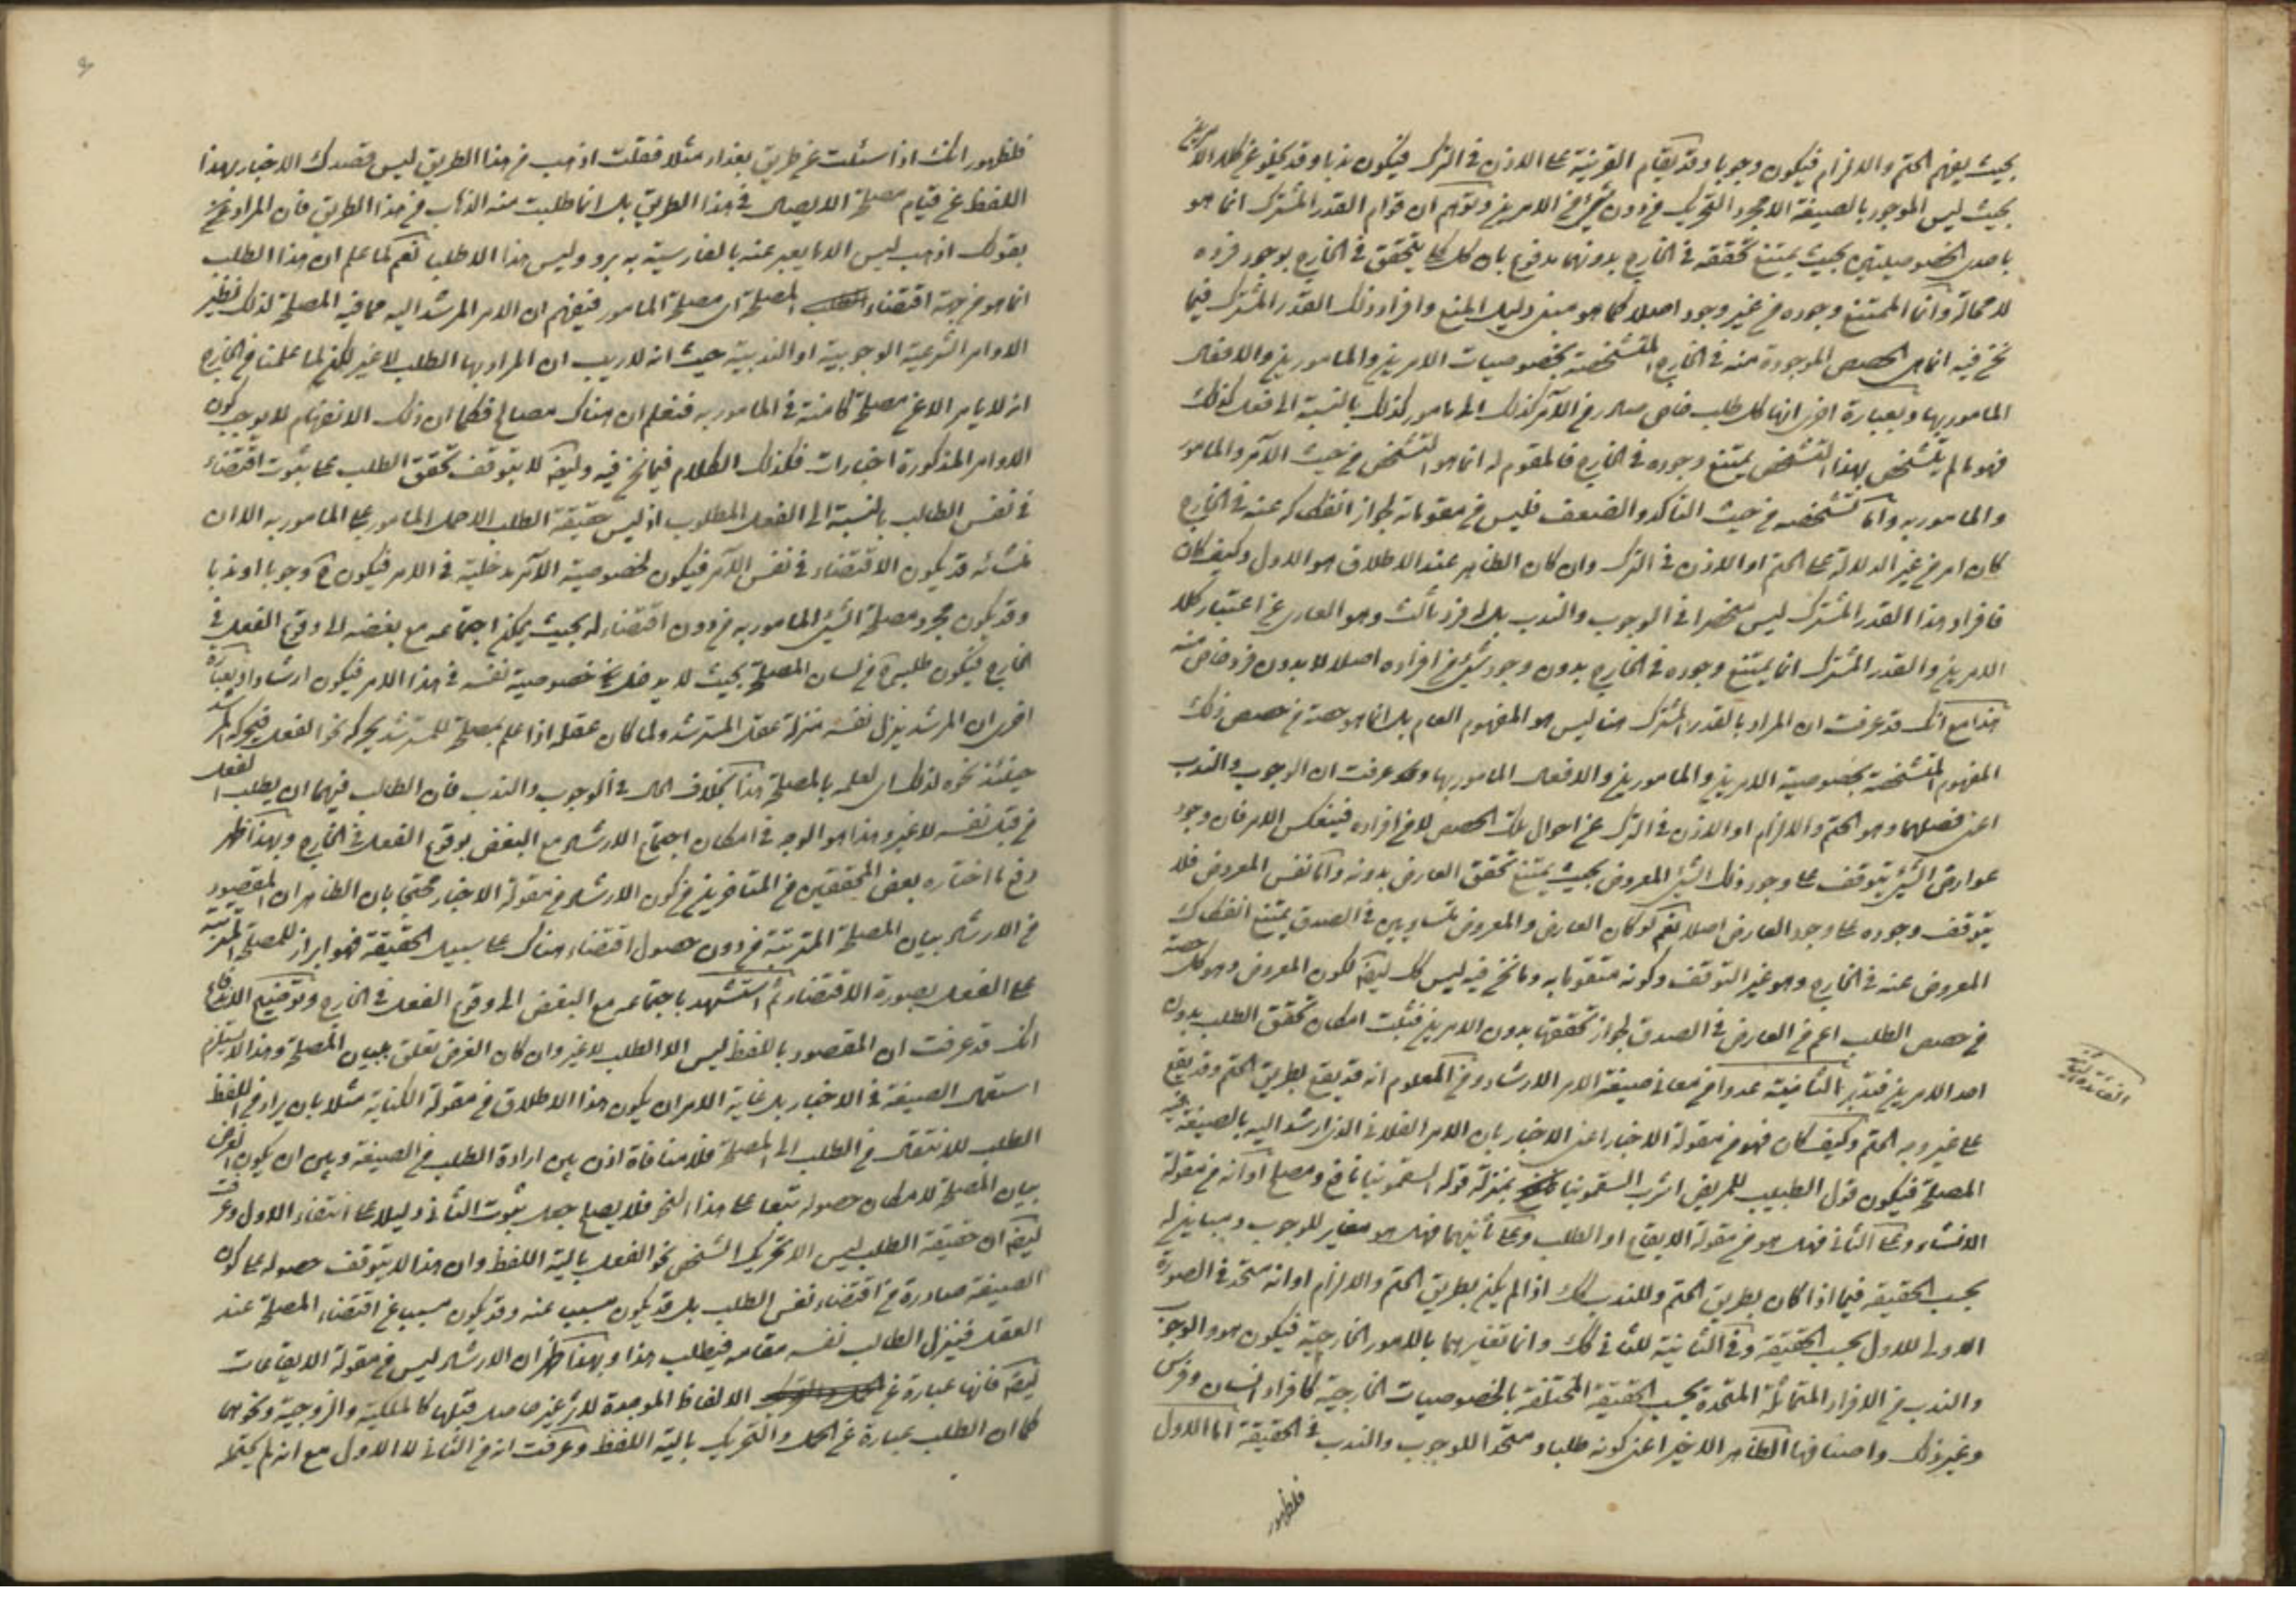 بحيث يفهم الحتم والالزام فيكون وجوبا وقد يقام القرينة على الاذن في الترك فيكون ندبا وقد يخلو عن كلا الامرين
بحيث ليس الموجود بالصيغة الا مجرد التحريك من دون شيء من الامرين وتوهم ان قوام القدر المشترك انما هو
باحدى الخصوصيتين بحيث يمتنع تحققه في الخارج بدونهما مدفوع بان كل كلي يتحقق في الخارج بوجود فرده
لا محالة وانما الممتنع وجوده من غير وجود اصلا كما هو مبنى دليل المنع وافراد ذلك القدر المشترك فيما
نحن فيه انما هي الحصص الموجودة منه في الخارج المتشخصة بخصوصيات الامرين والمامورين والافعال
المامور بها وبعبارة اخرى انها كل طلب خاص صادر من الآمر كذلك الى مامور كذلك بالنسبة الى فعل كذلك
فهو ما لم يتشخص بهذا التشخص يمتنع وجوده في الخارج فالمقوم له انما هو التشخص من حيث الآمر والمامور
والمامور به واما تشخصه من حيث التاكد والضعف فليس من مقوماته لجواز انفكاكه عنه في الخارج
كان امر من غير الدلالة على الحتم او الاذن في الترك وان كان الظاهر عند الاطلاق هو الاول وكيف كان
فافراد هذا القدر المشترك ليس منحصرا في الوجوب والندب بل له فرد ثالث وهو العاري عن اعتبار كلا
الامرين والقدر المشترك انما يمتنع وجوده في الخارج بدون وجود شيء من افراده اصلا لا بدون فرد خاص منه
هذا مع انك قد عرفت ان المراد بالقدر المشترك هنا ليس هو المفهوم العام بل انما هو حصة من حصص ذلك
المفهوم المتشخصة بخصوصية الامرين والمامورين والافعال المامور بها وقد عرفت ان الوجوب والندب
اعني فصليهما وهو الحتم والالزام او الاذن في الترك من احوال تلك الحصص لا من افراده فينعكس الامر فان وجود
عوارض الشيء يتوقف على وجود ذلك الشيء المعروض بحيث يمتنع تحقق العارض بدونه واما نفس المعروض فلا
يتوقف وجوده على وجود العارض اصلا نعم لو كان العارض والمعروض متساويين في الصدق يمتنع انفكاك
المعروض عنه في الخارج وهو غير التوقف وكونه متقوما به وما نحن فيه ليس كك ايضا لكون المعروض وهو كل حصة
من حصص الطلب اعم من العارض في الصدق لجواز تحققها بدون الامرين فثبت امكان تحقق الطلب بدون
احد الامرين فتدبر الثانية عدوا من معاني صيغة الامر الارشاد ومن المعلوم انه قد يقع بطريق الحتم وقد يقع
على غير وجه الحتم وكيف كان فهو من مقولة الاخبار اعني الاخبار بان الامر الفلاني الذي ارشد اليه بالصيغة فيه
المصلحة فيكون قول الطبيب للمريض اشرب السقمونيا بمنزلة قوله السقمونيا نافع ومصلح او انه من مقولة
الانشاء وعلى الثاني فهل هو من مقولة الايقاع او الطلب وعلى ثانيهما فهل هو مغاير للوجوب ومباين له
بحسب الحقيقة فيما اذا كان بطريق الحتم وللندب كك اذا لم يكن بطريق الحتم والالزام او انه متحد في الصورة
الاولى للاول بحسب الحقيقة وفي الثانية للثاني كك وانما تغايرهما بالامور الخارجية فيكون هو والوجوب
والندب من الافراد المتماثلة المتحدة بحسب الحقيقة المختلفة بالخصوصيات الخارجية كافراد انسان وفرس
وغير ذلك واصنافها الظاهر الاخير اعني كونه طلبا ومتحدا للوجوب والندب في الحقيقة اما الاول
فلظهور
فلظهور انك اذا سئلت عن طريق بغداد مثلا فقلت اذهب من هذا الطريق ليس قصدك الاخبار بهذا
اللفظ عن قيام مصلحة الايصال في هذا الطريق بل انما طلبت منه الذهاب من هذا الطريق فان المراد
بقولك اذهب ليس الا ما يعبر عنه بالفارسية به برو وليس هذا الا طلب نعم لما علم ان هذا الطلب
انما هو من جهة اقتضاء المصلحة اى مصلحة المامور فيفهم ان الامر المرشد اليه مما فيه المصلحة لذلك نظير
الاوامر الشرعية الوجوبية او الندبية حيث انه لا ريب ان المراد بها الطلب لا غير لكن لما علمنا من الخارج
انه لا يامر الا عن مصلحة كامنة في المامور به فنعلم ان هناك مصالح فكما ان ذلك الانفهام لا يوجب كون
الاوامر المذكورة اخبارات فكذلك الكلام فيما نحن فيه وايضا لا يتوقف تحقق الطلب على ثبوت اقتضاء
في نفس الطالب بالنسبة الى الفعل المطلوب اذ ليس حقيقة الطلب الا حمل المامور على المامور به الا ان
منشائه قد يكون الاقتضاء في نفس الآمر فيكون لخصوصية الآمر مدخلية في الامر فيكون ح وجوبا او ندبا
وقد يكون مجرد مصلحة الشيء المامور به من دون اقتضاء له بحيث يمكن اجتماعه مع بغضه لوقوع الفعل في
الخارج فيكون طلبه من لسان المصلحة بحيث لا يدخل خصوصية نفسه في هذا الامر فيكون ارشادا وبعبارة
اخرى ان المرشد ينزل نفسه منزلة عقل المسترشد ولما كان عقله اذا علم بمصلحة للمسترشد يحركه نحو الفعل فيحركه المرشد
حينئذ نحوه لذلك اى لعلمه بالمصلحة هذا بخلاف الحال في الوجوب والندب فان الطالب فيهما ان يطلب الفعل
من قبل نفسه لا غير وهذا هو الوجه في امكان اجتماع الارشاد مع البغض بوقوع الفعل في الخارج وبهذا ظهر
دفع ما اختاره بعض المحققين من المتاخرين من كون الارشاد من مقولة الاخبار محتجا بان الظاهر ان المقصود
من الارشاد بيان المصلحة المترتبة من دون حصول اقتضاء هناك على سبيل الحقيقة فهو ابراز للمصلحة المترتبة
على الفعل بصورة الاقتضاء ثم استشهد باجتماعه مع البغض الى وقوع الفعل في الخارج وتوضيح الدفاع
انك قد عرفت ان المقصود باللفظ ليس الا الطلب لا غير وان كان الغرض تعلق ببيان المصلحة وهذا لا يستلزم
استعمال الصيغة في الاخبار بل غاية الامر ان يكون هذا الاطلاق من مقولة الكناية مثلا بان يراد من اللفظ
الطلب للانتقال من الطلب الى المصلحة فلا منافاة اذن بين ارادة الطلب من الصيغة وبين ان يكون الغرض
بيان المصلحة لامكان حصوله تبعا على هذا النحو فلا يصلح جعل ثبوت الثاني دليلا على انتفاء الاول وعرفت
ايضا ان حقيقة الطلب ليس الا تحريك الشخص نحو الفعل بآلية اللفظ وان هذا لا يتوقف حصوله على كون
الصيغة صادرة من اقتضاء نفس الطلب بل قد يكون مسببا عنه وقد يكون مسببا عن اقتضاء المصلحة عند
العقل فينزل الطالب نفسه مقامه فيطلب هذا وبهذا ظهر ان الارشاد ليس من مقولة الايقاعات
ايضا فانها عبارة عن الالفاظ الموجدة لاثر غير حاصل قبلها كالملكية والزوجية ونحوهما
كما ان الطلب عبارة عن الحمل والتحريك بآلية اللفظ وعرفت انه من الثاني لا الاول مع انه لم يحتمله